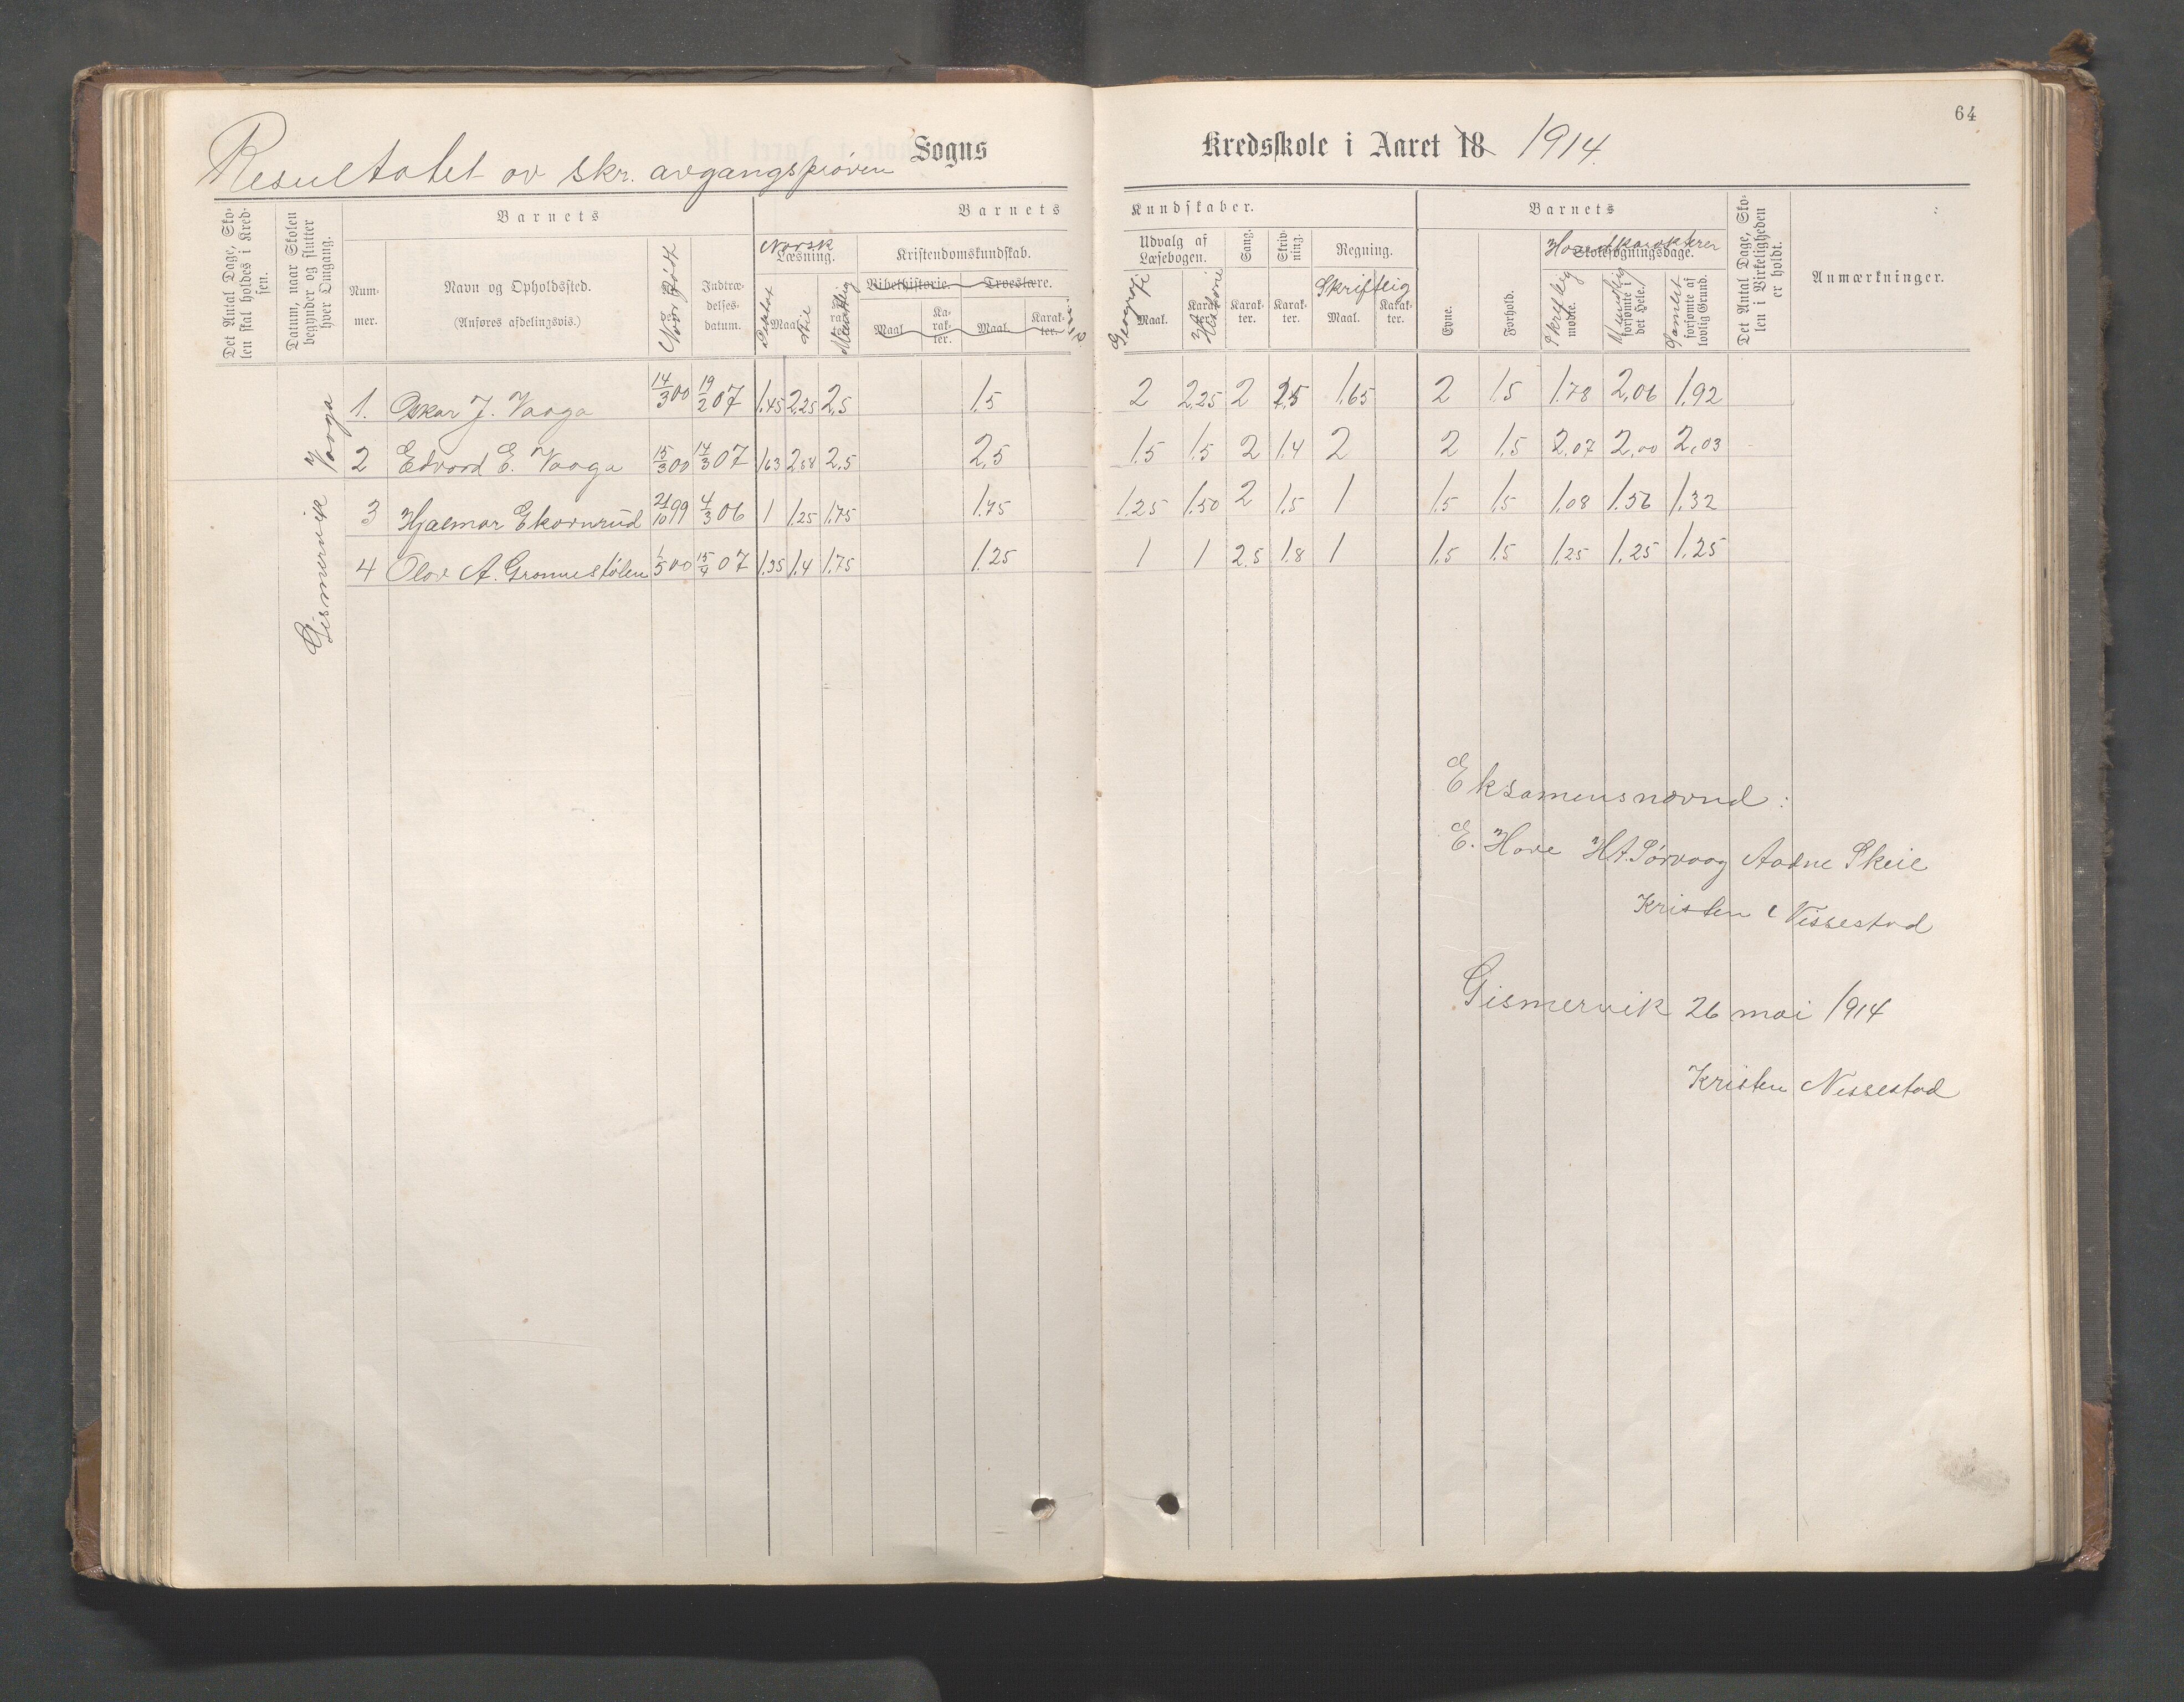 64
Resultatet av skr. avgangsprøven Sogns Kredsskole i Aaret 18 1914.
Det Antal Dage, Skolen skal holdes i Kredsen.
Datum, naar Skolen begynder og slutter hver Omgang.
Barnets
Nummer.
Navn og Opholdssted.
(Anføres afdelingsvis.)
Naar født
Indtrædelsesdatum.
Barnets Kundskaber.
Norsk
Læsning.
Diktat Maal. Stil Mundtlig
Kristendomskundskab.
Bibelhistorie. Troeslære.
Maal. Karakter. Maal. Karakter.
Udvalg af Læsebogen.
Geografi Maal. Historie Karakter.
Sang. Karakter.
Skrivning. Karakter.
Regning.
Skriftlig
Maal. Karakter.
Barnets
Evne.
Forhold.
Hovedkarakterer
Skolesøgningsdage.
Skriftlig mødte.
Mundtlig forsømte i det Hele.
Samlet forsømte af lovlig Grund.
Det Antal Dage, Skolen i Virkeligheden er holdt.
Anmærkninger.
Vaaga
1. Oskar J. Vaaga 14/3 00 19/2 07 1,45 2,25 2,5 1,5 2 2,25 2 2,5 1,65 2 1,5 1,78 2,06 1,92
2 Edvard E. Vaaga 15/3 00 14/3 07 1,63 2,88 2,5 2,5 1,5 1,5 2 1,4 2 2 1,5 2,07 2,00 2,03
Gismervik
3 Hjalmar Ekornrud 21/10 99 4/3 06 1 1,25 1,75 1,75 1,25 1,50 2 1,5 1 1,5 1,5 1,08 1,56 1,32
4 Olav A. Grønnestølen 1/5 00 15/4 07 1,35 1,4 1,75 1,25 1 1 2,5 1,8 1 1,5 1,5 1,25 1,25 1,25
Eksamensnævnd:
E. Hove H.A. Sørvaag Aadne Skeie
Kristen Nissestad
Gismervik 26 mai 1914
Kristen Nissestad